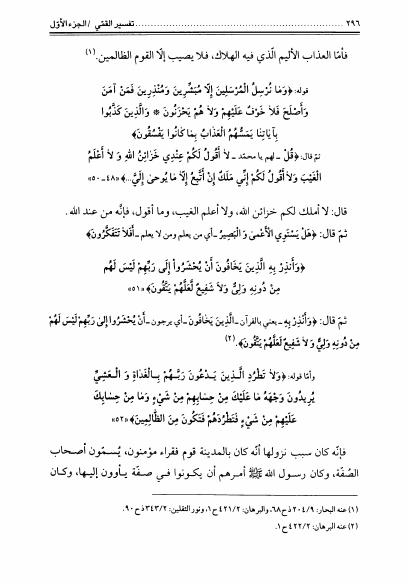 ٢٩٦ ........ تفسير القمّي / الجزء الأوّل
فأمّا العذاب الأليم الّذي فيه الهلاك، فلا يصيب إلّا القوم الظالمين.(١)
قوله: ﴿وَمَا نُرْسِلُ الْمُرْسَلِينَ إِلَّا مُبَشِّرِينَ وَمُنذِرِينَ فَمَنْ آمَنَ
وَأَصْلَحَ فَلَا خَوْفٌ عَلَيْهِمْ وَلَا هُمْ يَحْزَنُونَ * وَالَّذِينَ كَذَّبُوا
بِآيَاتِنَا يَمَسُّهُمُ الْعَذَابُ بِمَا كَانُوا يَفْسُقُونَ﴾
ثمّ قال: ﴿قُلْ ـ لهم يا محمّد ـ لَا أَقُولُ لَكُمْ عِندِي خَزَائِنُ اللهِ وَلَا أَعْلَمُ
الْغَيْبَ وَلَا أَقُولُ لَكُمْ إِنِّي مَلَكٌ إِنْ أَتَّبِعُ إِلَّا مَا يُوحىٰ إِلَيَّ...﴾ «٤٨ ـ ٥٠»
قال: لا أملك لكم خزائن الله، ولا أعلم الغيب، وما أقول، فإنّه من عند الله.
ثمّ قال: ﴿هَلْ يَسْتَوِي الْأَعْمَىٰ وَالْبَصِيرُ ـ أي من يعلم ومن لا يعلم ـ أَفَلَا تَتَفَكَّرُونَ﴾
﴿وَأَنذِرْ بِهِ الَّذِينَ يَخَافُونَ أَنْ يُحْشَرُوا إِلَى رَبِّهِمْ لَيْسَ لَهُم
مِنْ دُونِهِ وَلِيٌّ وَلَا شَفِيعٌ لَعَلَّهُمْ يَتَّقُونَ﴾ «٥١»
ثمّ قال: ﴿وَأَنْذِرْ بِهِ ـ يعني بالقرآن ـ الَّذِينَ يَخَافُونَ ـ أي يرجون ـ أَنْ يُحْشَرُوا إِلَى رَبِّهِمْ لَيْسَ لَهُمْ
مِن دُونِهِ وَلِيٌّ وَلَا شَفِيعٌ لَعَلَّهُمْ يَتَّقُونَ﴾.(٢)
وأمّا قوله: ﴿وَلَا تَطْرُدِ الَّذِينَ يَدْعُونَ رَبَّهُمْ بِالْغَدَاةِ وَ الْعَشِيِّ
يُرِيدُونَ وَجْهَهُ مَا عَلَيْكَ مِنْ حِسَابِهِمْ مِنْ شَيْءٍ وَمَا مِنْ حِسَابِكَ
عَلَيْهِمْ مِنْ شَيْءٍ فَتَطْرُدَهُمْ فَتَكُونَ مِنَ الظَّالِمِينَ﴾ «٥٢»
فإنّه كان سبب نزولها أنّه كان بالمدينة قوم فقراء مؤمنون، يسمّون أصحاب
الصُفّة، وكان رسول الله ﷺ أمرهم أن يكونوا في صفّة يأوون إليها، وكان
(١) عنه البحار: ٢٠٤/٩ ذ ح٦٨، والبرهان: ٤٢١/٢ ح١، ونور الثقلين: ٣٤٣/٢ ذ ح٩٠.
(٢) عنه البرهان: ٤٢٢/٢ ح١.